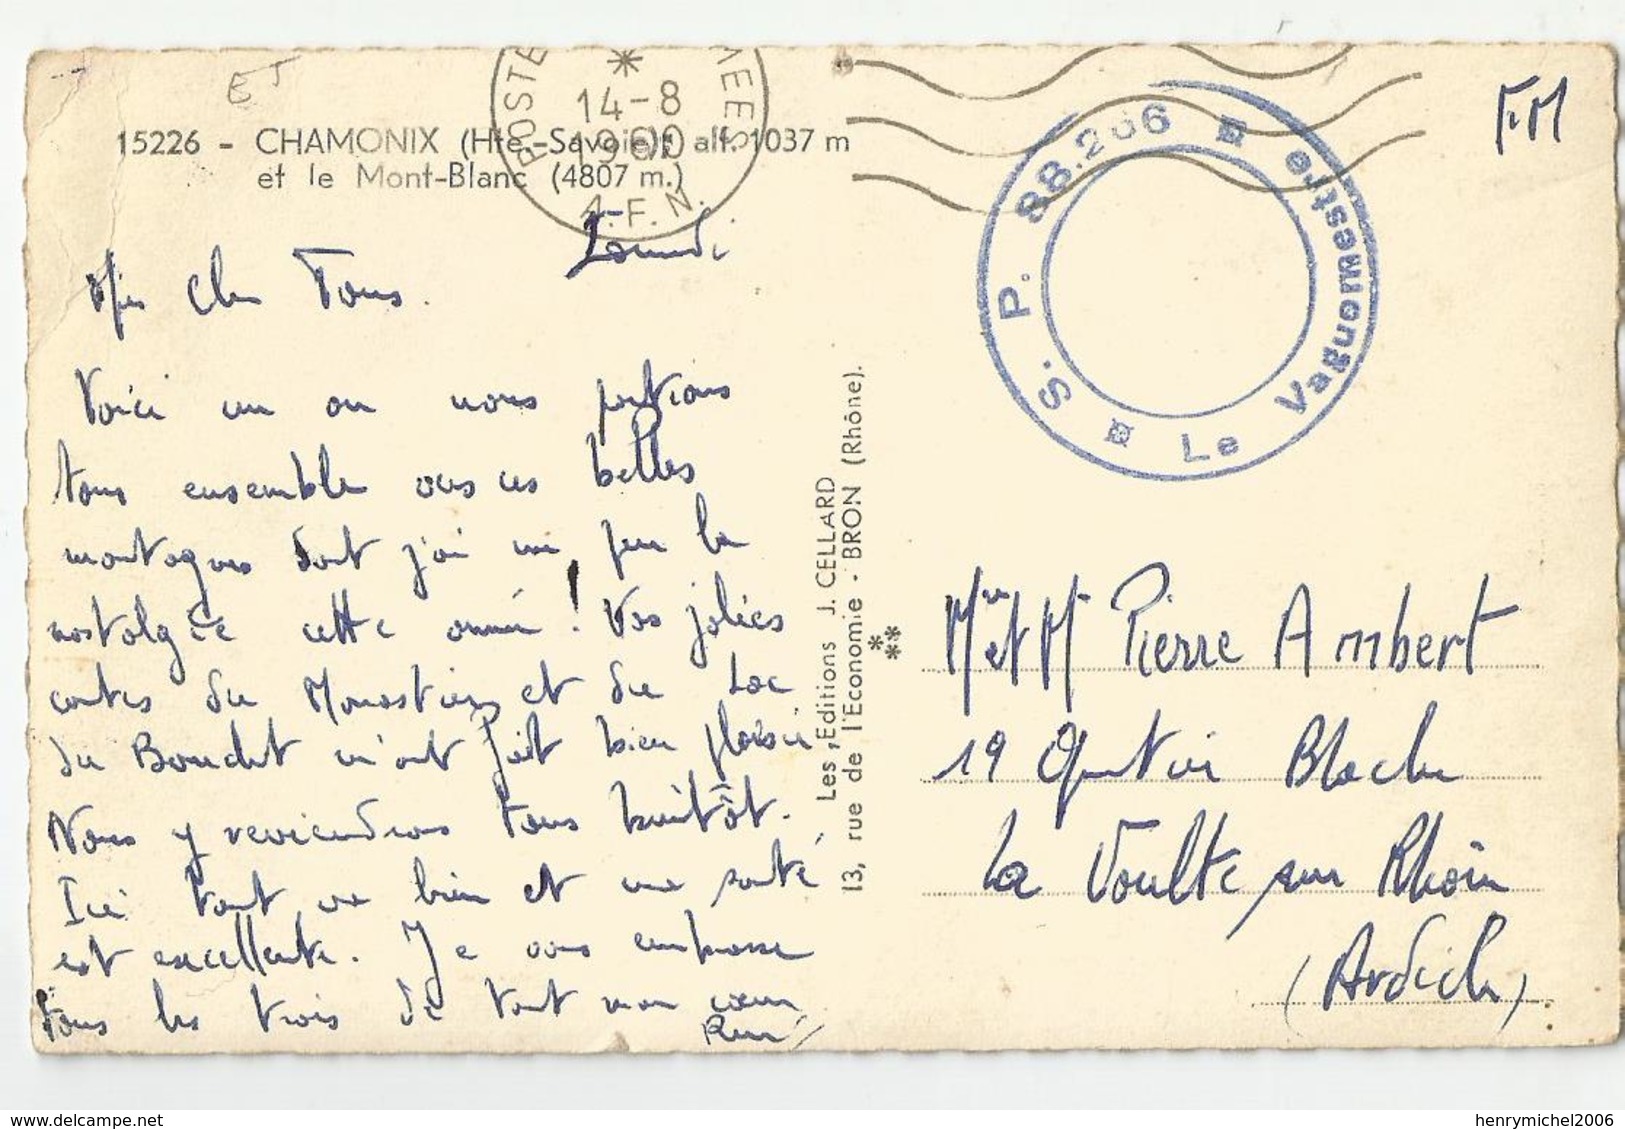 EJ
POSTE ... MEES
*
14-8
1960
A.F.N.
15226 - CHAMONIX (Hte.-Savoie) alt. 1037 m
et le Mont-Blanc (4807 m.)
Lundi
Mes Chers Tous.
Voici un an nous partions
tous ensemble vers ces belles
montagnes dont j'ai un peu la
nostalgie cette année ! Vos jolies
cartes du Monastier et du Lac
du Bouchet m'ont fait bien plaisir
Nous y reviendrons tous bientôt.
Ici tout va bien et ma santé
est excellente. Je vous embrasse
tous les trois de tout mon cœur
René
Les Editions J. CELLARD
13, rue de l'Economie - BRON (Rhône).
S. P. 88.266 ¤ Le Vaguemestre ¤
FM
Mme et Mr Pierre Ambert
19 Quartier Blache
La Voulte sur Rhône
(Ardèche)
henrymichel2006